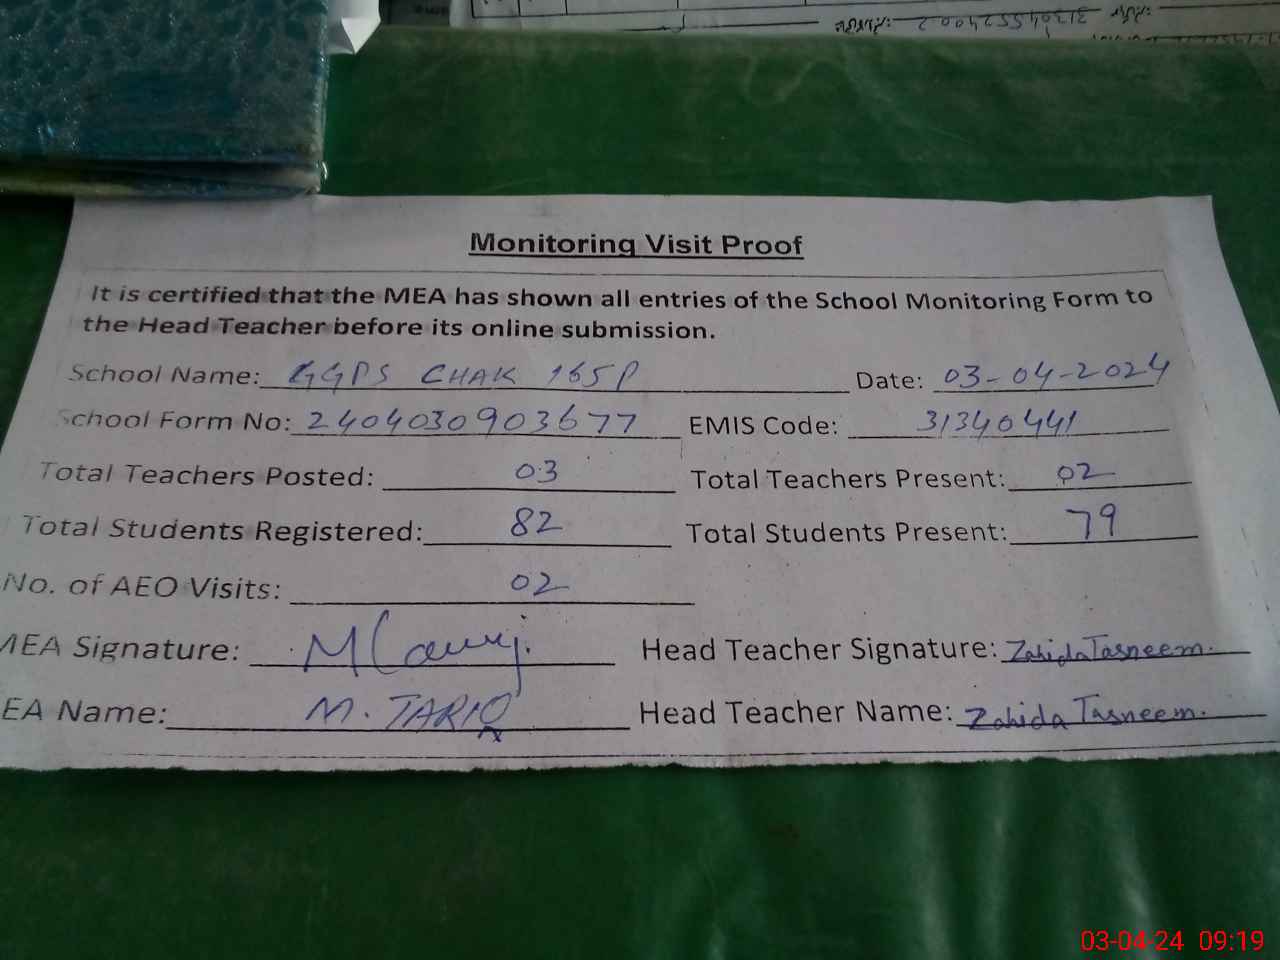 31304552400 2
Monitoring Visit Proof
It is certified that the MEA has shown all entries of the School Monitoring Form to
the Head Teacher before its online submission.
School Name: GGPS CHAK 165P Date: 03-04-2024
School Form No: 2404030903677 EMIS Code: 31340441
Total Teachers Posted: 03 Total Teachers Present: 02
Total Students Registered: 82 Total Students Present: 79
No. of AEO Visits: 02
MEA Signature: Head Teacher Signature: Zahida Tasneem.
EA Name: M. TARIQ Head Teacher Name: Zahida Tasneem.
03-04-24 09:19